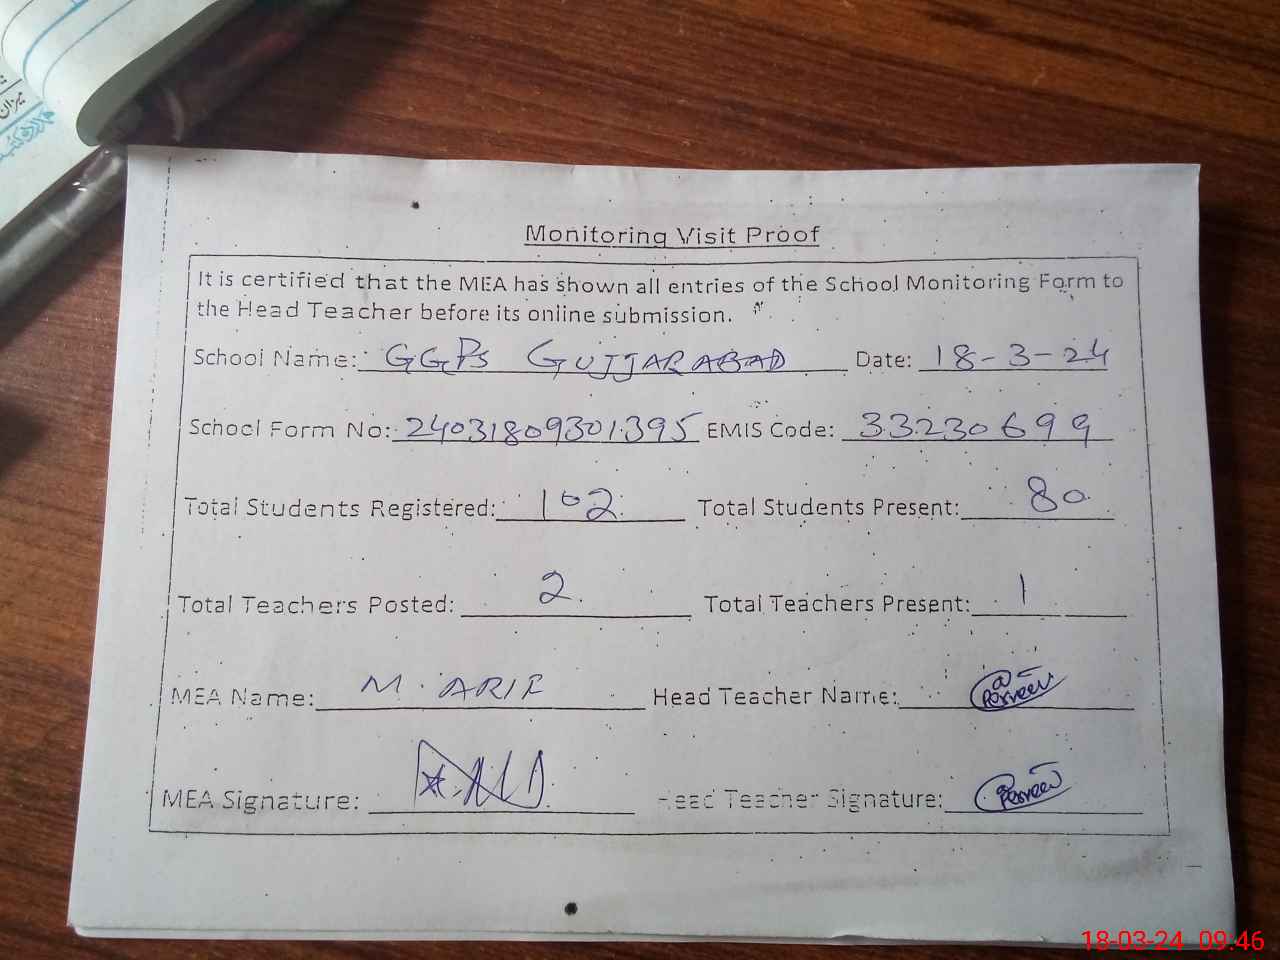 میزان
Monitoring Visit Proof
It is certified that the MEA has shown all entries of the School Monitoring Form to
the Head Teacher before its online submission.
School Name: GGPS GUJJARABAD Date: 18-3-24
School Form No: 24031809301395 EMIS Code: 33230699
Total Students Registered: 102 Total Students Present: 80
Total Teachers Posted: 2 Total Teachers Present: 1
MEA Name: M. ARIF Head Teacher Name: Perveen
MEA Signature: Head Teacher Signature: Perveen
18-03-24 09:46